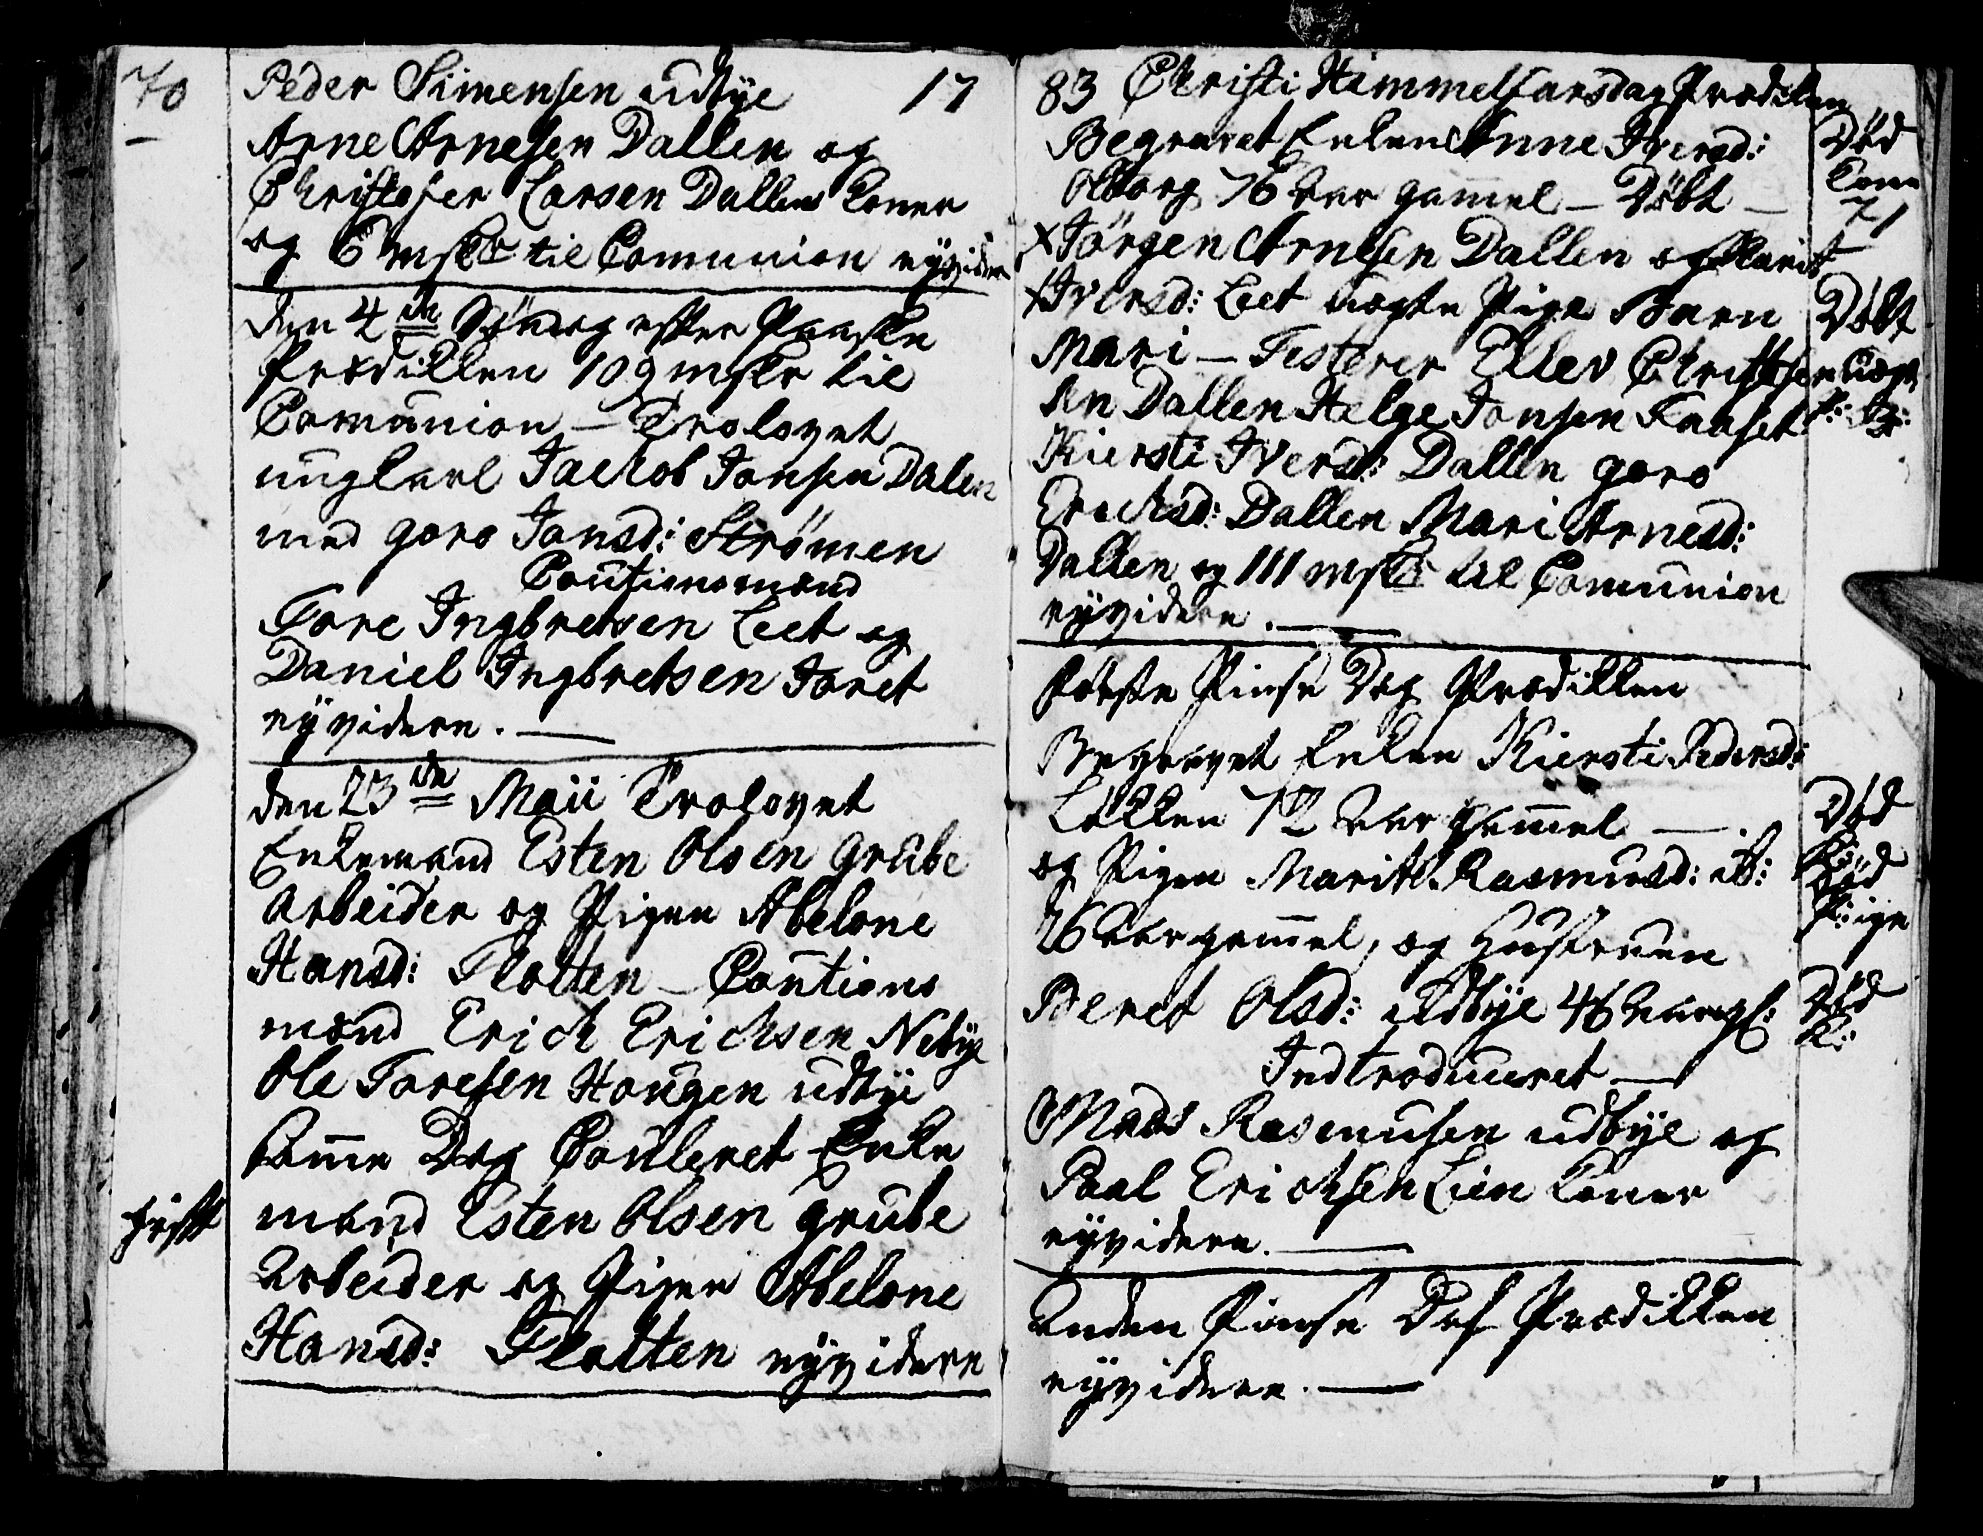 70
Peder Simensen udbye 17
Arne Arnesen Dallen og
Christofer Larsen Dallens Koner
og 6 msk͞r til Comunion eÿvidere
den 4de Søndag efter Paaske
Prædikken 109 mskr til
Comunion – Trolovet
ungkarl Jachob Jonsen Dalen
med goro Jonsd: Strömen
Coutionsmænd
Tore Ingbretsen Leet og
Daniel Ingbretsen Joret
eÿvidere. —
den 23de Maii Trolovet
Enkemand Esten Olsen grube
Arbeider og Pigen Abelone
Hansd: Flotten – Coutions
mænd Erich Erichsen Nebÿe
Ole Toresen Hougen udbÿe
samme Dag Copuleret Enke
mand Esten Olsen grube
Arbeider og Pigen Abelone
Hansd: Flotten eÿvidere
gift
83 Christi Himmelfarsdag Prædiken
Begravet Enken Anne Iversd:
Olborg 76 aar gamel – Döbt –
x Jörgen Arnesen Dallen og Marit
x Iversd: Leet uægte Pige Barn
Mari – Testerer Ellev Christofersen
Dallen Helge Jonsen Kaaset
Kiersti Iversd: Dallen goro
Erichsd: Dallen Mari Arnesd:
Dallen og 111 msk͞r til Comunion
eÿvidere. —
förste Pinse Dag Prædikken
Begravet Enken Kiersti Pedersd:
Løkken 72 aar gammel —
og Pigen Marit Rasmusd: ib:
26 aar gammel, og Hustruen
Beret Olsd: udbÿe 46 aar gl:
Indtroduceret —
Mads Rasmusen udbÿe og
Paal Erichsen Lien Koner
eÿvidere. —
anden Pinse Dag Prædikken
eÿvidere. —
Död
Kone
71
Döbt
uægt
P: B:
Död
Död
Pige
Död
K: